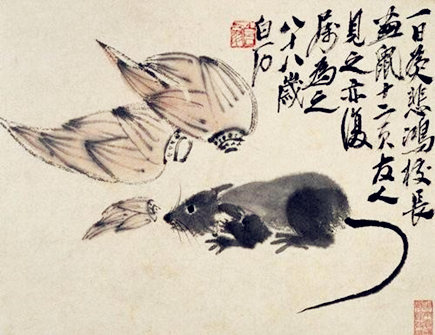 一日悲鴻校長
畫鼠十二頁友人
見之亦復
屬為之
八十八歲
白石